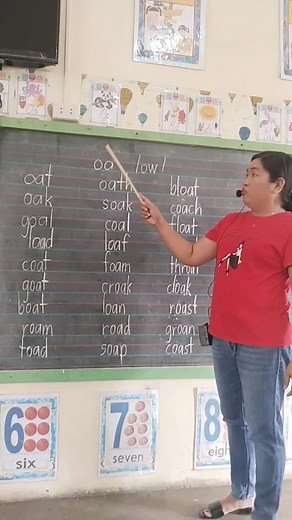 oa /ow/
oat oath bloat
oak soak coach
goal coal float
load loaf
coat foam throat
goat croak cloak
boat loan roast
roam road groan
toad soap coast
6 7 8
six seven